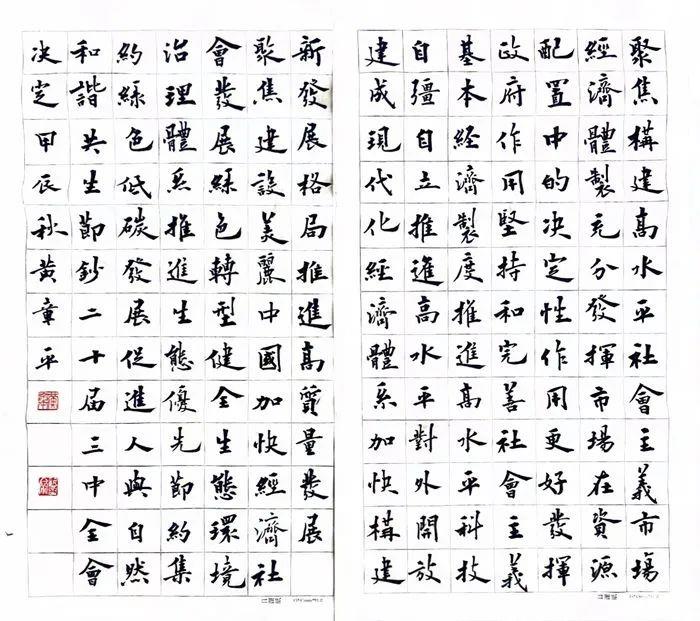 聚焦構建高水平社會主義市場
經濟體製充分發揮市場在資源
配置中的决定性作用更好發揮
政府作用堅持和完善社會主義
基本經濟製度推進高水平科技
自彊自立推進高水平對外開放
建成現代化經濟體系加快構建
新發展格局推進高質量發展
聚焦建設美麗中國加快經濟社
會發展緑色轉型健全生態環境
治理體系推進生態優先節約集
約緑色低碳發展促進人與自然
和諧共生節鈔二十届三中全會
决定甲辰秋黄章平